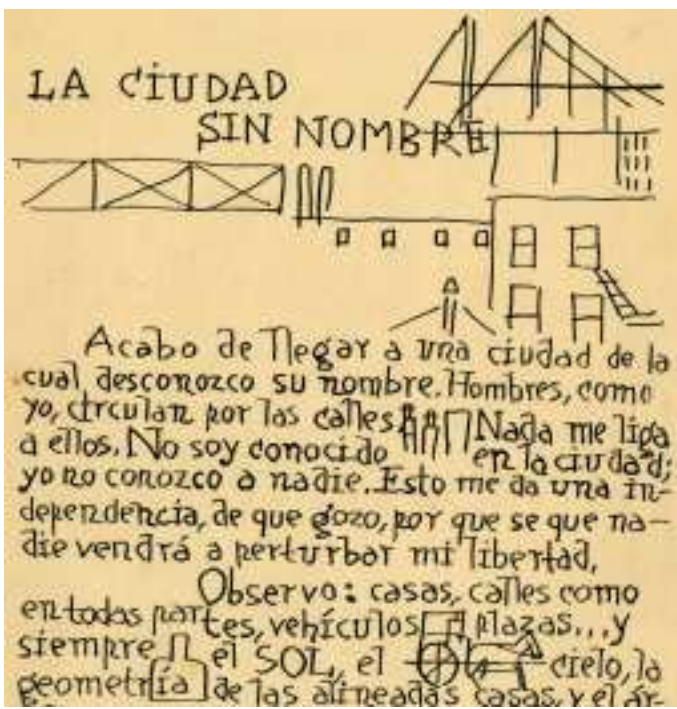 LA CIUDAD
SIN NOMBRE
Acabo de llegar a una ciudad de la
cual desconozco su nombre. Hombres, como
yo, circulan por las calles. Nada me liga
a ellos. No soy conocido en la ciudad;
yo no conozco a nadie. Esto me da una in-
dependencia, de que gozo, por que se que na-
die vendrá a perturbar mi libertad.
Observo: casas, calles como
en todas partes, vehículos plazas... y
siempre el SOL, el cielo, la
geometría de las alineadas casas, y el ár-